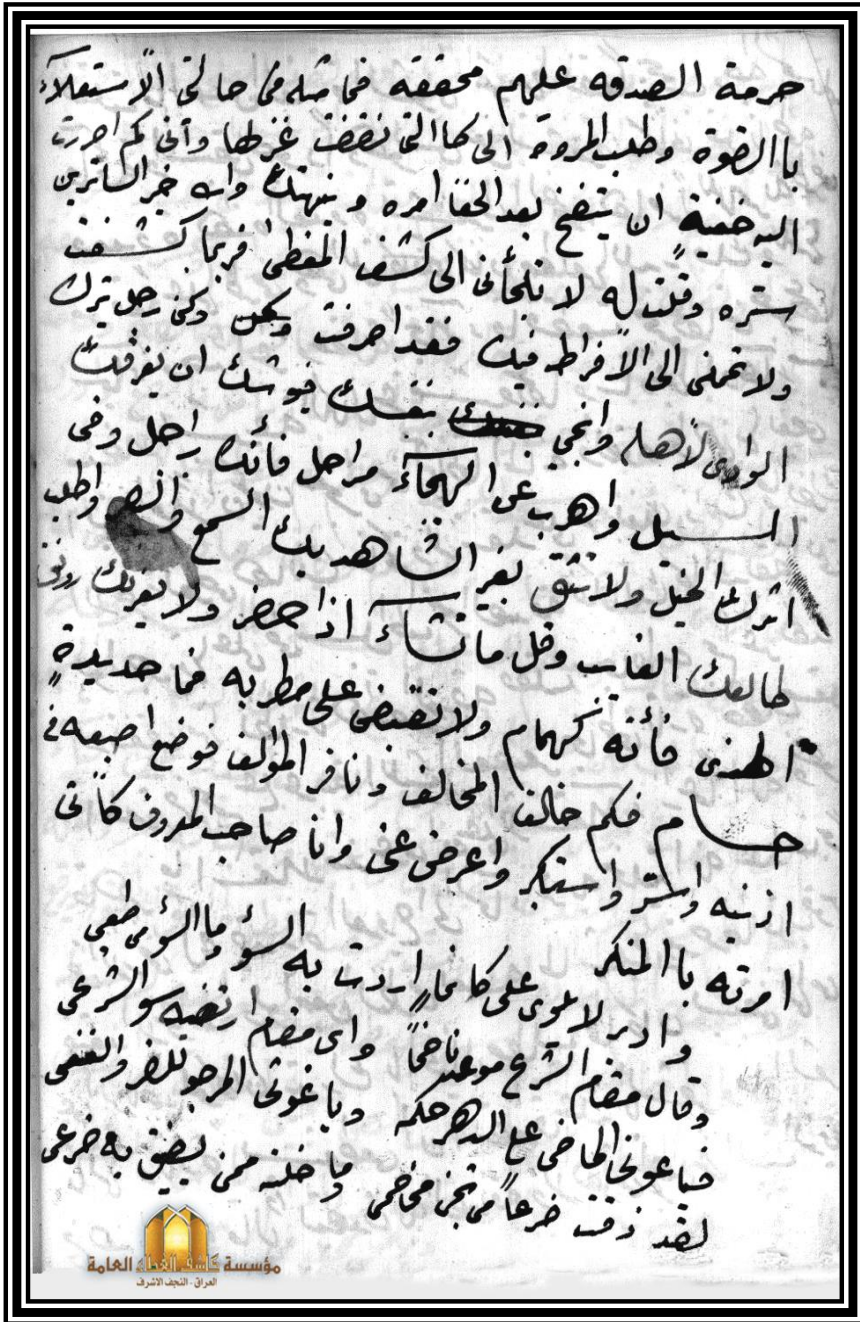 حرمة الصدقه عليهم محققه فما مثله في حالتي الاستعلاء
باالقوة وطلب المروة الى كاالتي نقضت غزلها وأني كم احررت
اليه خفيةٍ ان يتضح بعد الخفا امره وينهتك واسه خير الساترين
ستره وقلت له لا تلجأني الى كشف المغطى فربما كشفت
ولا تحملني الى الافراط فيك فقد احرقت ولكن رجل ترك
الوادي لأهله وانجي بنفسك فيوشك ان يغرقك
السيل واهرب عن الهيجاء مراحل فأنك راجل وفي
اترك الخيل ولا تثق بغير الشاهد بك السمع واطلب
طالعك الغايب وقل ما تشاء اذا حضر ولا يغرنك رونق
الهندي فأنه كهام ولا تقبض على مطربه فما حديدةٍ
حسام فكم خالف المخالف ونافر المؤالف فوضع اصبعه في
اذنيه واستكبر واعرض عني وانا صاحب المعروف كأني
امرته باالمنكر
وادبر لا يلوي علي كأنما اردت به السؤ وما السؤ من طبعي
وقال مقام الشرع موعد واي مقام ارتضيه سو الشرعي
فيا عوني الماضي على الدهر حكمه ويا غوثي المرجو للضر والنفعي
لقد ذقت ضرعاً من وما خلته ممن يضيق به ذرعي
مؤسسة كاشف الغطاء العامة
العراق - النجف الاشرف